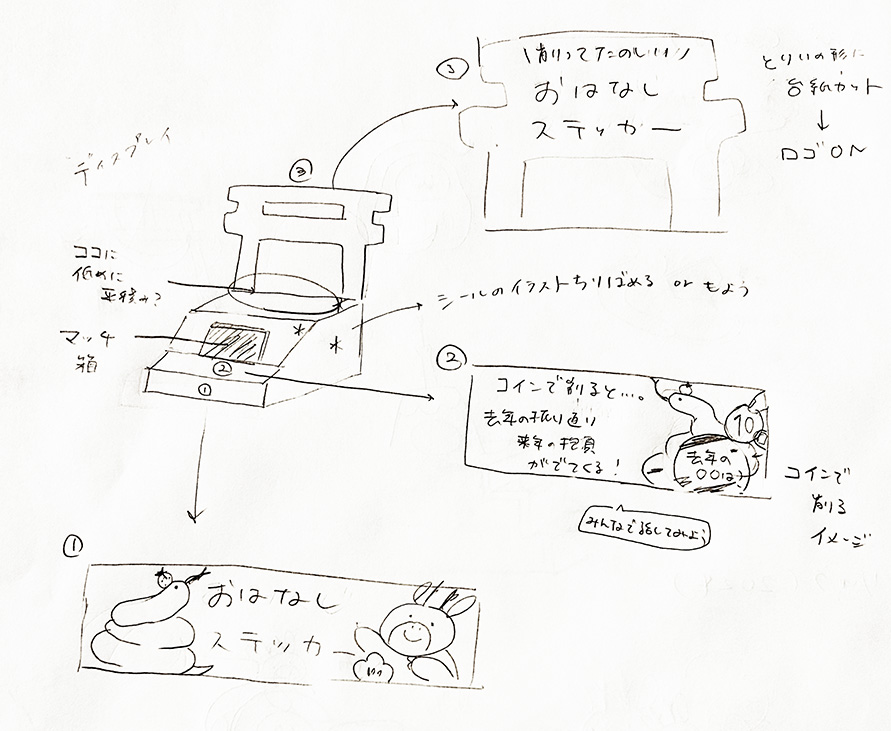 ディスプレイ
③
ココに
低めに
平積み?
マッチ
箱
②
①
シールのイラストちりばめる or もよう
③
\削ってたのしい!/
おはなし
ステッカー
とりいの形に
台紙カット
↓
ロゴON
②
コインで削ると…。
去年の振り返り
来年の抱負
がでてくる!
10
去年の
〇〇は
みんなで話してみよう
コインで
削る
イメージ
①
おはなし
ステッカー